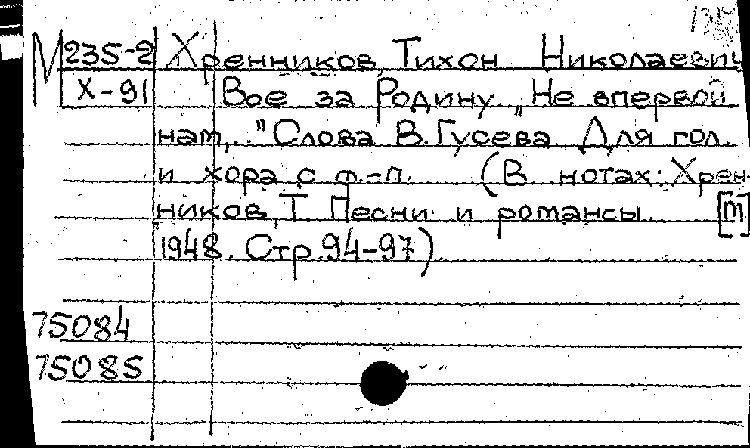 М 235-2 Хренников, Тихон Николаевич
Х-91 Все за Родину. „Не впервой
нам,..." Слова В. Гусева. Для гол.
и хора с ф.-п. (В нотах: Хрен-
ников, Т. Песни и романсы. [М]
1948. Стр. 94-97)
75084
75085